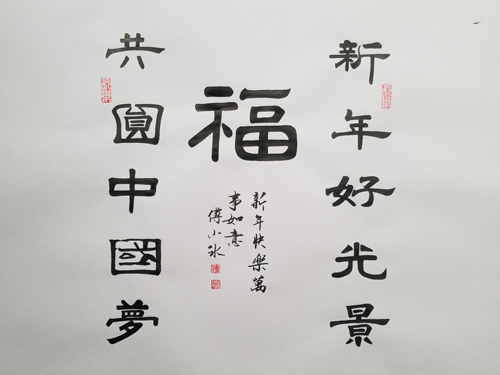 新年好光景
福
新年快樂萬
事如意
傅小冰
共圓中國夢